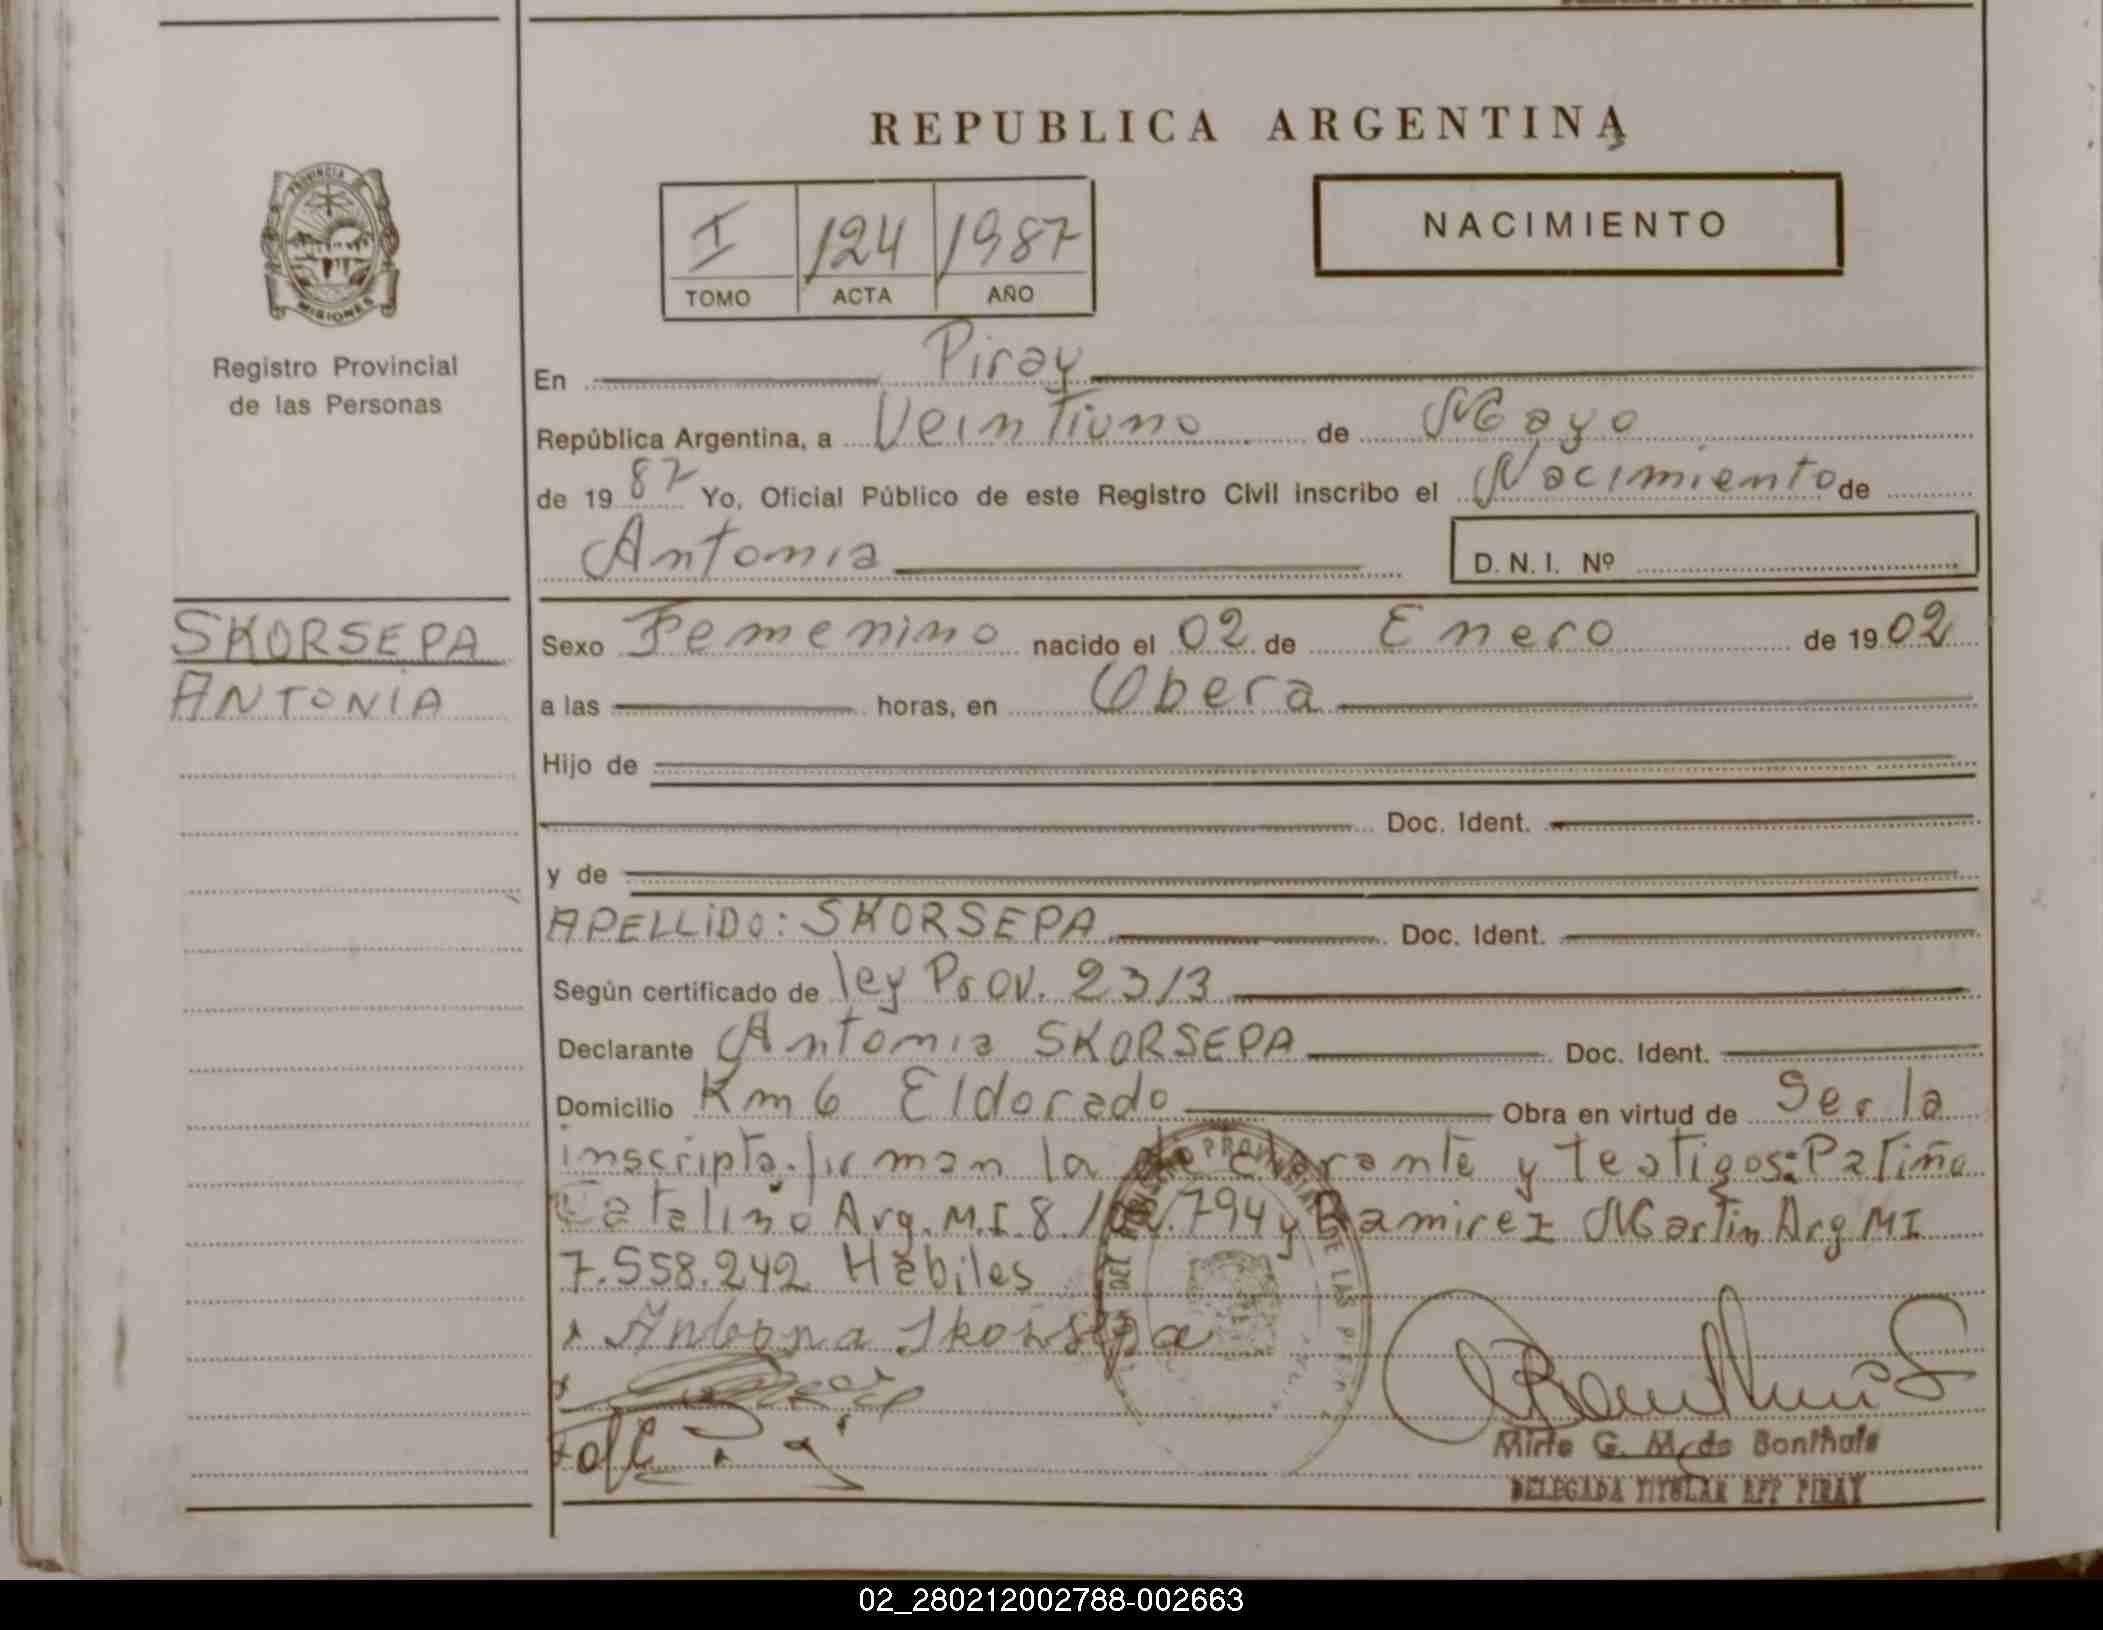 REPUBLICA ARGENTINA
PROVINCIA
MISIONES
Registro Provincial
de las Personas
I 124 1987
TOMO ACTA AÑO
NACIMIENTO
En Piray
República Argentina, a Veintiuno de Mayo
de 1987 Yo, Oficial Público de este Registro Civil inscribo el Nacimiento de
Antonia D. N. I. Nº
SKORSEPA
ANTONIA
Sexo Femenino nacido el 02 de Enero de 1902
a las horas, en Obera
Hijo de
Doc. Ident.
y de
APELLIDO: SKORSEPA Doc. Ident.
Según certificado de ley Prov. 23/3
Declarante Antonia SKORSEPA Doc. Ident.
Domicilio Km 6 Eldorado Obra en virtud de Ser la
inscripta. firman la declarante y testigos: Patiño
Catalino Arg. M.I. 8. 794 y Ramirez Martin Arg MI
7.558.242 Habiles
Antonna Skorsepa
Mirta G. M. de Bonthuis
DELEGADA TITULAR RPP PIRAY
02_280212002788-002663